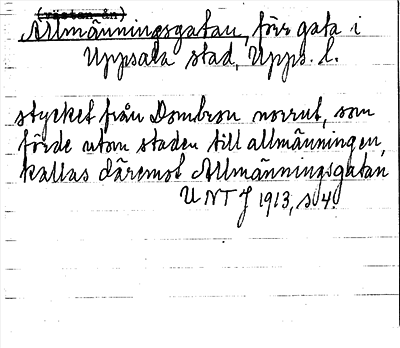 (västan ån)
Allmänningsgatan, förr gata i
Uppsala stad, Upps. l.
stycket från Dombron norrut, som
förde utom staden till allmänningen,
kallas däremot Allmänningsgatan
UNTJ 1913, s 4.